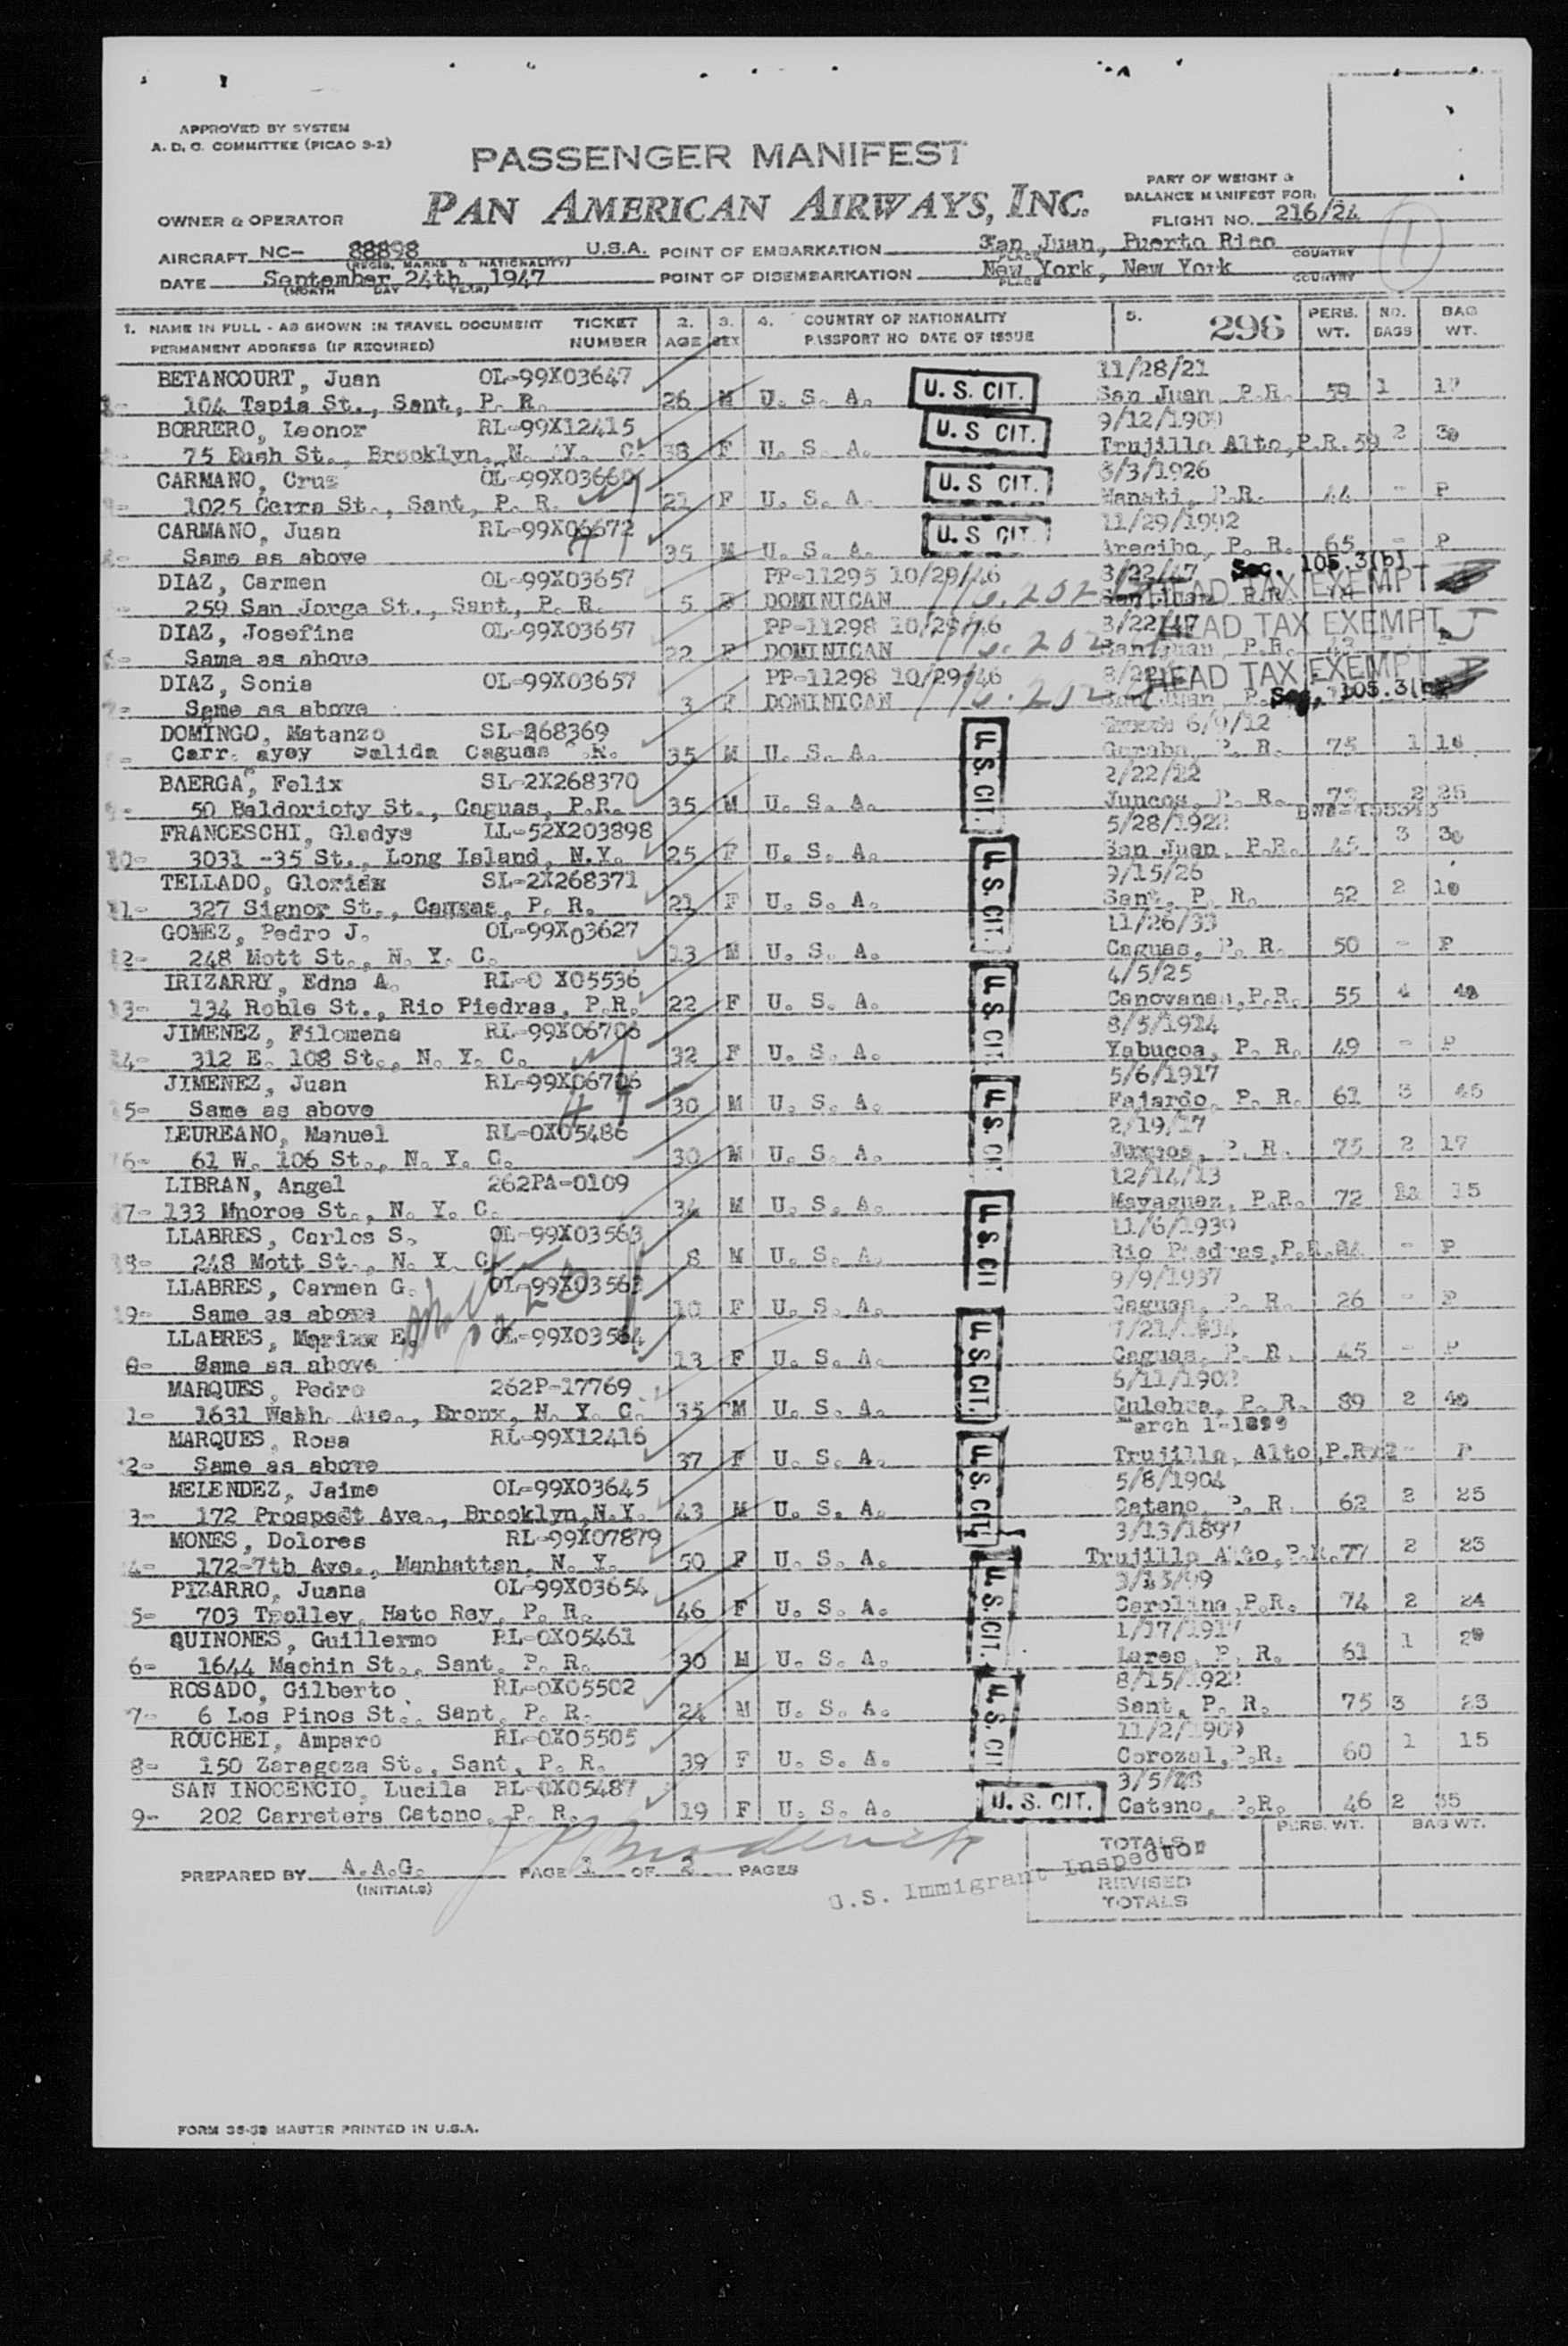 APPROVED BY SYSTEM
A. D. C. COMMITTEE (PICAO 3-2)
PASSENGER MANIFEST
PAN AMERICAN AIRWAYS, INC.
PART OF WEIGHT &
BALANCE MANIFEST FOR:
FLIGHT NO. 216/24
OWNER & OPERATOR
AIRCRAFT NC- 88898 U.S.A. POINT OF EMBARKATION San Juan, Puerto Rico
(REGIS. MARKS & NATIONALITY) PLACE COUNTRY
DATE September 24th, 1947 POINT OF DISEMBARKATION New York, New York
(MONTH DAY YEAR) PLACE COUNTRY
1
1. NAME IN FULL - AS SHOWN IN TRAVEL DOCUMENT TICKET 2. 3. 4. COUNTRY OF NATIONALITY 5. 296 PERS. NO. BAG
PERMANENT ADDRESS (IF REQUIRED) NUMBER AGE SEX PASSPORT NO DATE OF ISSUE WT. BAGS WT.
BETANCOURT, Juan OL-99X03647 11/28/21
104 Tapia St., Sant, P. R. 26 M U. S. A. U. S. CIT. San Juan, P.R. 59 1
BORRERO, Leonor RL-99X12415 U. S CIT. 9/12/1909
75 Bush St., Brooklyn, N. Y. C. 38 F U. S. A. Trujillo Alto, P.R. 59 2
CARMANO, Cruz OL-99X03660 U. S CIT. 8/3/1926
1025 Cerra St., Sant, P. R. 21 F U. S. A. Manati, P.R. 44 - P
CARMANO, Juan RL-99X06672 U. S CIT. 11/29/1902
Same as above 35 M U. S. A. Arecibo, P. R. 65 - P
DIAZ, Carmen OL-99X03657 PP-11295 10/29/46 3/22/47 Sec. 105.3(b)
259 San Jorge St., Sant, P. R. 5 DOMINICAN HEAD TAX EXEMPT
DIAZ, Josefina OL-99X03657 PP-11298 10/29/46 3/22/47 HEAD TAX EXEMPT
6- Same as above 22 F DOMINICAN San Juan, P.R.
DIAZ, Sonia OL-99X03657 PP-11298 10/29/46 HEAD TAX EXEMPT
7- Same as above 3 F DOMINICAN San Juan, Sec. 105.3(b)
DOMINGO, Matanzo SL-268369 6/9/12
Carr. ayey Salida Caguas P.R. 35 M U. S. A. U. S. CIT. Gurabo, P. R. 75 1
BAERGA, Felix SL-2X268370 2/22/22
9- 50 Baldorioty St., Caguas, P.R. 35 M U. S. A. Juncos, P. R. 2 25
FRANCESCHI, Gladys LL-52X203898 5/28/1922
10- 3031 -35 St., Long Island, N.Y. 25 F U. S. A. U. S. CIT. San Juan, P.R. 45 3
TELLADO, Gloria SL-2X268371 9/15/26
11- 327 Signor St., Caguas, P. R. 21 F U. S. A. Sant, P. R. 52 2
GOMEZ, Pedro J. OL-99X03627 11/26/33
12- 248 Mott St., N. Y. C. 13 M U. S. A. Caguas, P. R. 50 - P
IRIZARRY, Edna A. RL-0 X05536 4/5/25
13- 134 Roble St., Rio Piedras, P.R. 22 F U. S. A. U. S. CIT. Canovanas, P.R. 55 4
JIMENEZ, Filomena RL-99X06706 8/5/1914
14- 312 E. 108 St., N. Y. C. 32 F U. S. A. Yabucoa, P. R. 49 - P
JIMENEZ, Juan RL-99X06706 5/6/1917
15- Same as above 30 M U. S. A. U. S. CIT Fajardo, P. R. 61 3 45
LEUREANO, Manuel RL-0X05486 2/19/17
16- 61 W. 106 St., N. Y. C. 30 M U. S. A. Juncos, P. R. 75 2 17
LIBRAN, Angel 262PA-0109 12/14/13
17- 133 Mnoroe St., N. Y. C. 34 M U. S. A. Mayaguez, P.R. 72 15
LLABRES, Carlos S. OL-99X03563 11/6/1939
18- 248 Mott St., N. Y. C. 8 M U. S. A. U. S. CIT Rio Piedras, P.R. - P
LLABRES, Carmen G. OL-99X03563 9/9/1937
19- Same as above 10 F U. S. A. Caguas, P. R. 26 - P
LLABRES, E. OL-99X03564 7/21/1934
0- Same as above 13 F U. S. A. U. S. CIT. Caguas, P. R. 45 - P
MARQUES, Pedro 262P-17769 6/11/1902
1- 1631 Wash. Ave., Bronx, N. Y. C. 35 M U. S. A. Culebra, P. R. 89 2
MARQUES, Rosa RL-99X12416 March 1-1899
2- Same as above 37 F U. S. A. U. S. CIT. Trujillo, Alto, P.R. - P
MELENDEZ, Jaime OL-99X03645 5/8/1904
3- 172 Prospect Ave., Brooklyn, N.Y. 43 M U. S. A. Catano, P. R. 62 2 25
MONES, Dolores RL-99X07879 3/13/1897
4- 172-7th Ave., Manhatten, N. Y. 50 F U. S. A. Trujillo Alto, P.R. 77 2 23
PIZARRO, Juana OL-99X03654 3/13/99
5- 703 Trolley, Hato Rey, P. R. 46 F U. S. A. U. S. CIT. Carolina, P.R. 74 2 24
QUINONES, Guillermo RL-0X05461 1/17/1917
6- 1644 Machin St., Sant, P. R. 30 M U. S. A. Lares, P. R. 61 1
ROSADO, Gilberto RL-0X05502 8/15/1922
7- 6 Los Pinos St., Sant, P. R. 24 M U. S. A. U. S. CIT Sant, P. R. 75 3 23
ROUCHEI, Amparo RL-0X05505 11/2/1909
8- 150 Zaragoza St., Sant, P. R. 39 F U. S. A. Corozal, P.R. 60 1 15
SAN INOCENCIO, Lucila RL-0X05487 3/5/28
9- 202 Carretera Catano, P. R. 19 F U. S. A. U. S. CIT. Catano, P.R. 46 2 35
PERS. WT. BAG WT.
PREPARED BY A.A.G. PAGE 1 OF 2 PAGES TOTALS
(INITIALS) U.S. Immigrant Inspector
REVISED
TOTALS
FORM 35-39 MASTER PRINTED IN U.S.A.